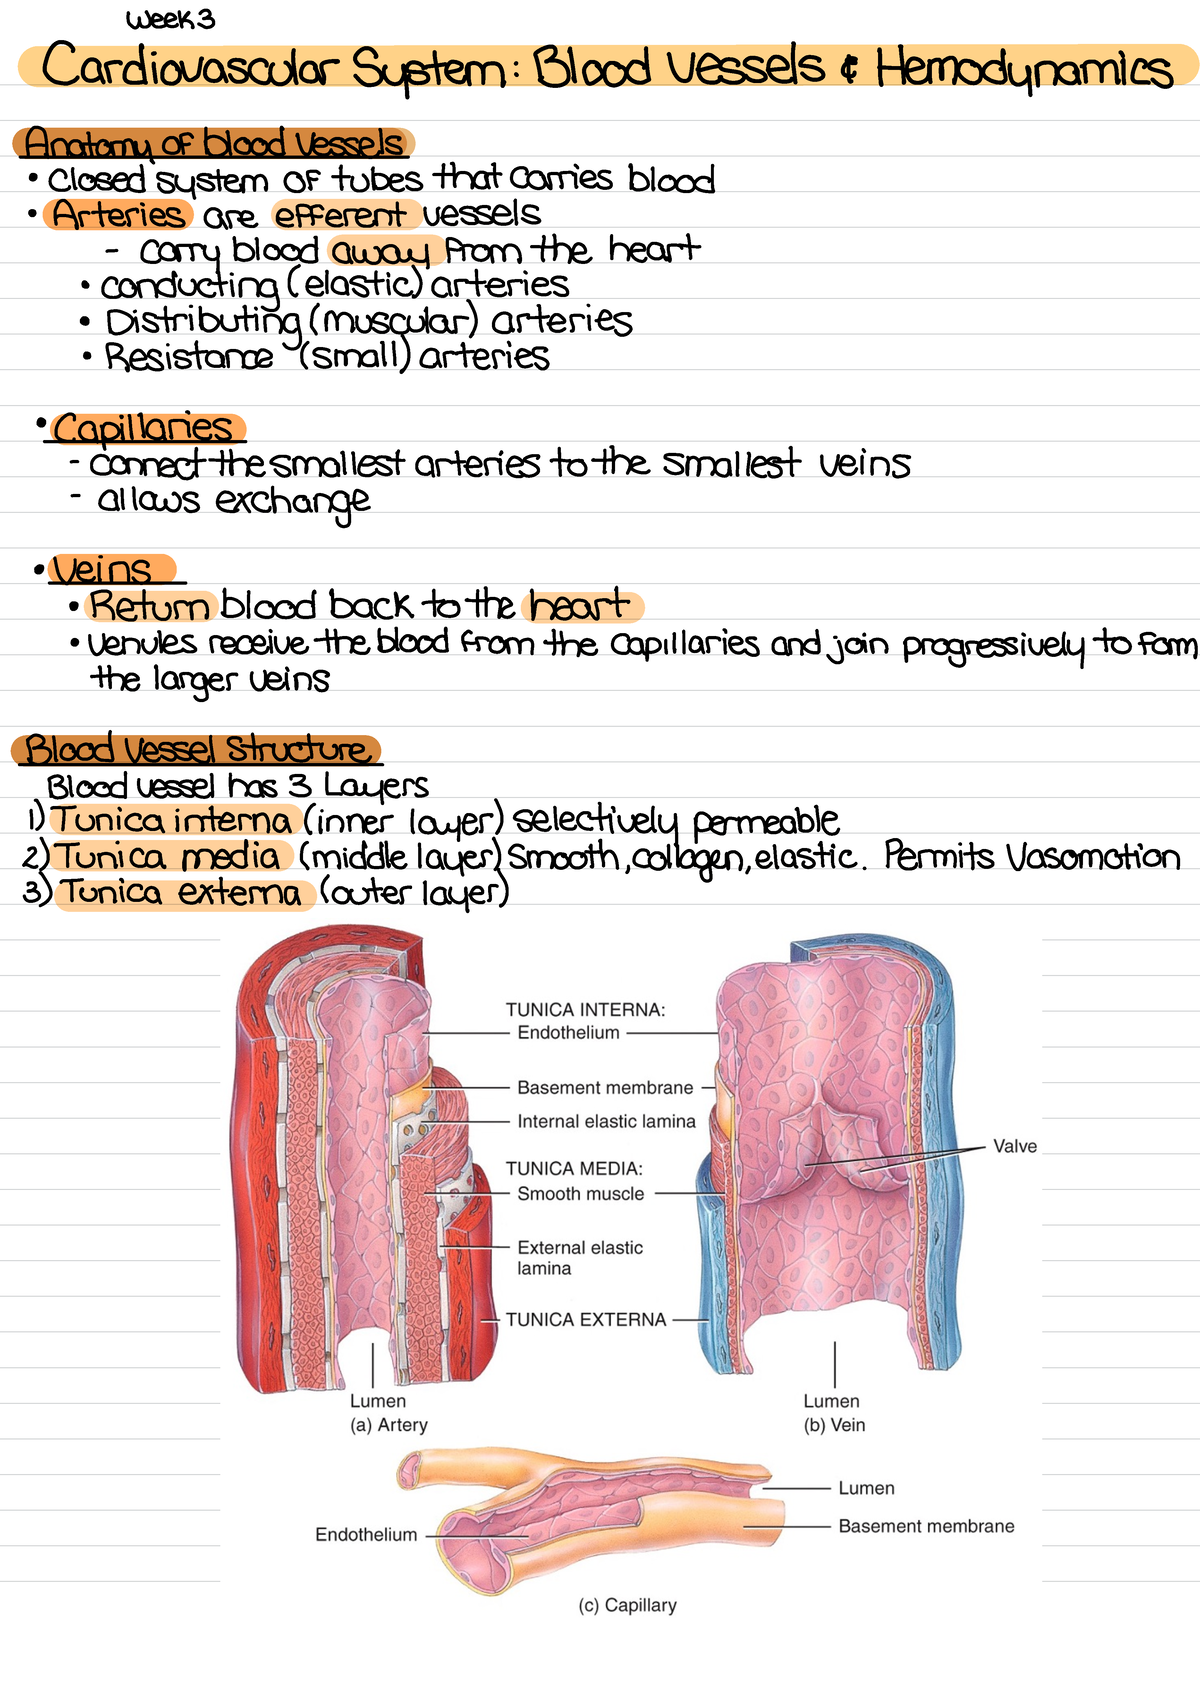 Week 3
Cardiovascular System: Blood Vessels & Hemodynamics
Anatomy of blood Vessels
• Closed system of tubes that carries blood
• Arteries are efferent vessels
- carry blood away from the heart
• conducting (elastic) arteries
• Distributing (muscular) arteries
• Resistance (small) arteries
• Capillaries
- connect the smallest arteries to the smallest veins
- allows exchange
• Veins
• Return blood back to the heart
• Venules receive the blood from the capillaries and join progressively to form
the larger veins
Blood Vessel Structure
Blood vessel has 3 Layers
1) Tunica interna (inner layer) selectively permeable
2) Tunica media (middle layer) Smooth, collagen, elastic. Permits Vasomotion
3) Tunica externa (outer layer)
TUNICA INTERNA:
Endothelium
Basement membrane
Internal elastic lamina
Valve
TUNICA MEDIA:
Smooth muscle
External elastic
lamina
TUNICA EXTERNA
Lumen
(a) Artery
Lumen
(b) Vein
Lumen
Basement membrane
Endothelium
(c) Capillary